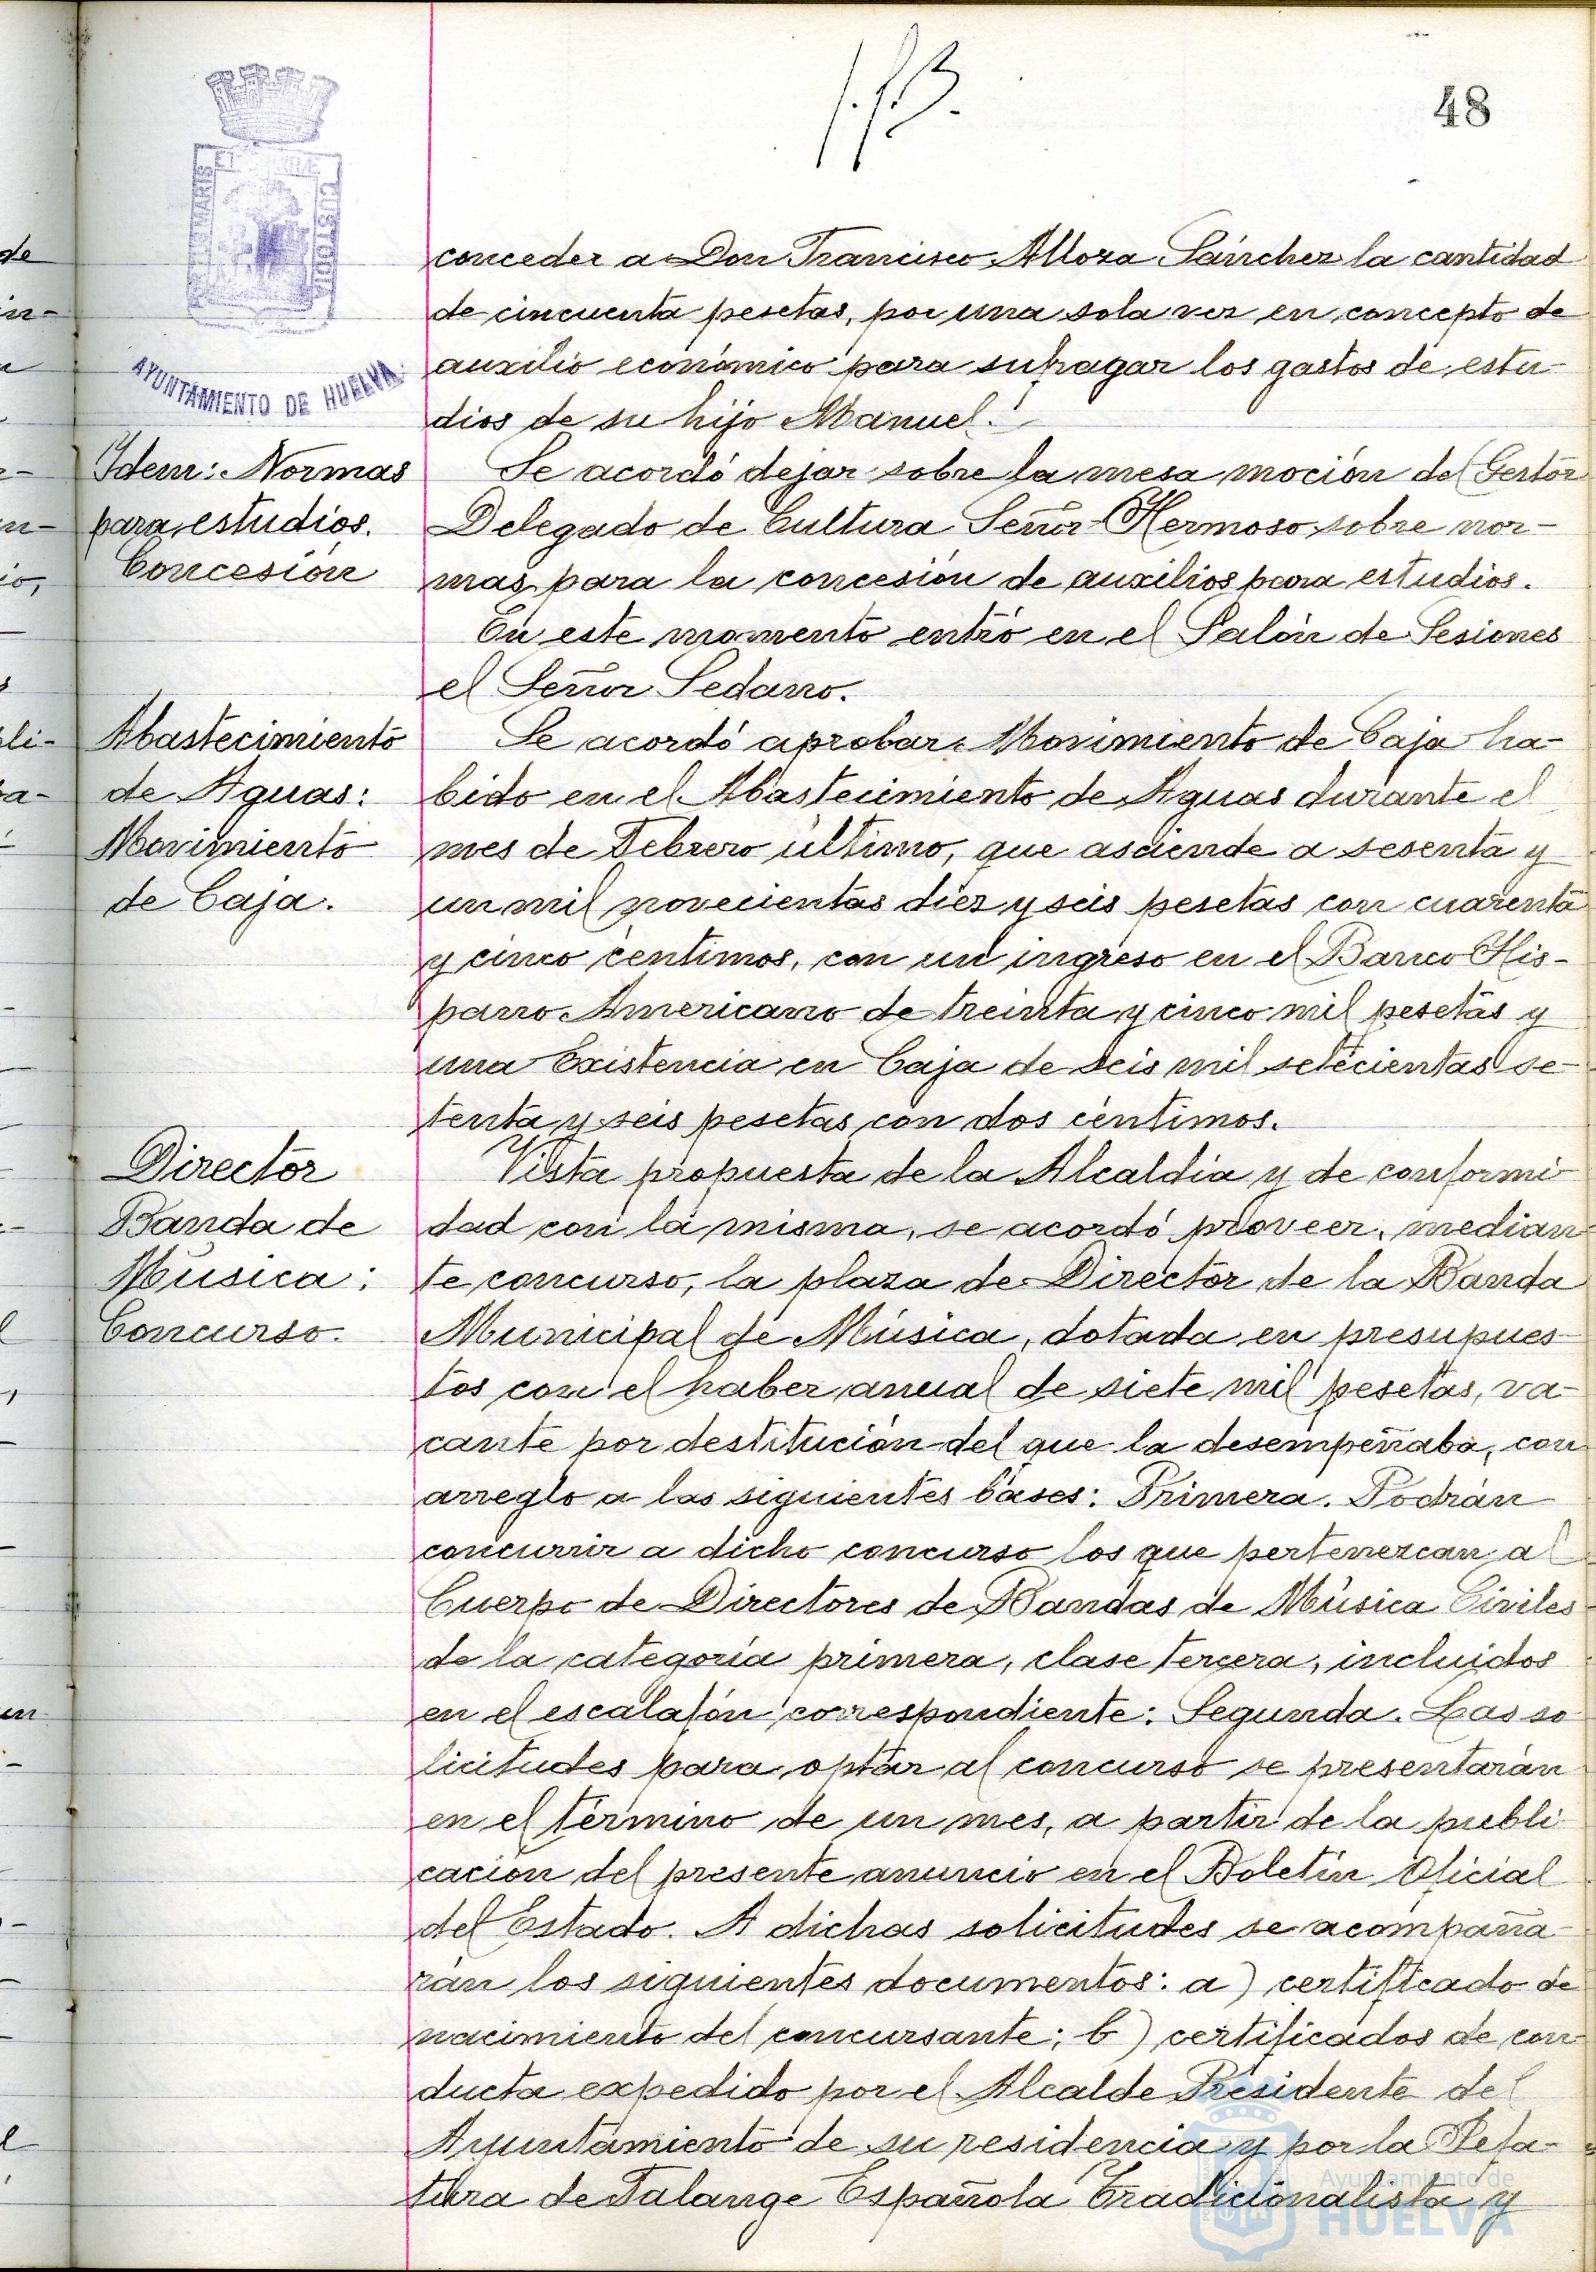 48
PORTUS MARIS ET TERRAE CUSTODIA
AYUNTAMIENTO DE HUELVA
conceder a Don Francisco Alloza Sánchez la cantidad
de cincuenta pesetas, por una sola vez en concepto de
auxilio económico para sufragar los gastos de estu-
dios de su hijo Manuel.
Idem: Normas
para estudios.
Concesión
Se acordó dejar sobre la mesa moción del Gestor
Delegado de Cultura Señor Hermoso sobre nor-
mas para la concesión de auxilios para estudios.
En este momento entró en el Salón de Sesiones
el Señor Sedano.
Abastecimiento
de Aguas:
Movimiento
de Caja.
Se acordó aprobar Movimiento de Caja ha-
bido en el Abastecimiento de Aguas durante el
mes de Febrero último, que asciende a sesenta y
un mil novecientas diez y seis pesetas con cuarenta
y cinco céntimos, con un ingreso en el Banco His-
pano Americano de treinta y cinco mil pesetas y
una Existencia en Caja de seis mil setecientas se-
tenta y seis pesetas con dos céntimos.
Director
Banda de
Música:
Concurso.
Vista propuesta de la Alcaldía y de conformi-
dad con la misma, se acordó proveer, median-
te concurso, la plaza de Director de la Banda
Municipal de Música, dotada en presupues-
tos con el haber anual de siete mil pesetas, va-
cante por destitución del que la desempeñaba, con
arreglo a las siguientes bases: Primera. Podrán
concurrir a dicho concurso los que pertenezcan al
Cuerpo de Directores de Bandas de Música Civiles
de la categoría primera, clase tercera, incluidos
en el escalafón correspondiente: Segunda. Las so-
licitudes para optar al concurso se presentarán
en el término de un mes, a partir de la publi-
cación del presente anuncio en el Boletín Oficial
del Estado. A dichas solicitudes se acompaña-
rán los siguientes documentos: a) certificado de
nacimiento del concursante; b) certificados de con-
ducta expedido por el Alcalde Presidente del
Ayuntamiento de su residencia y por la Jefa-
tura de Falange Española Tradicionalista y
Ayuntamiento de
HUELVA